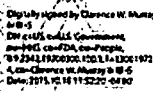 Digitally signed by Clarence W. Murray
III -S
DN: c=US, o=U.S. Government,
ou=HHS, ou=FDA, ou=People,
cn=Clarence W. Murray III -S
Date: 2015.10.16 11:52:20 -04'00'